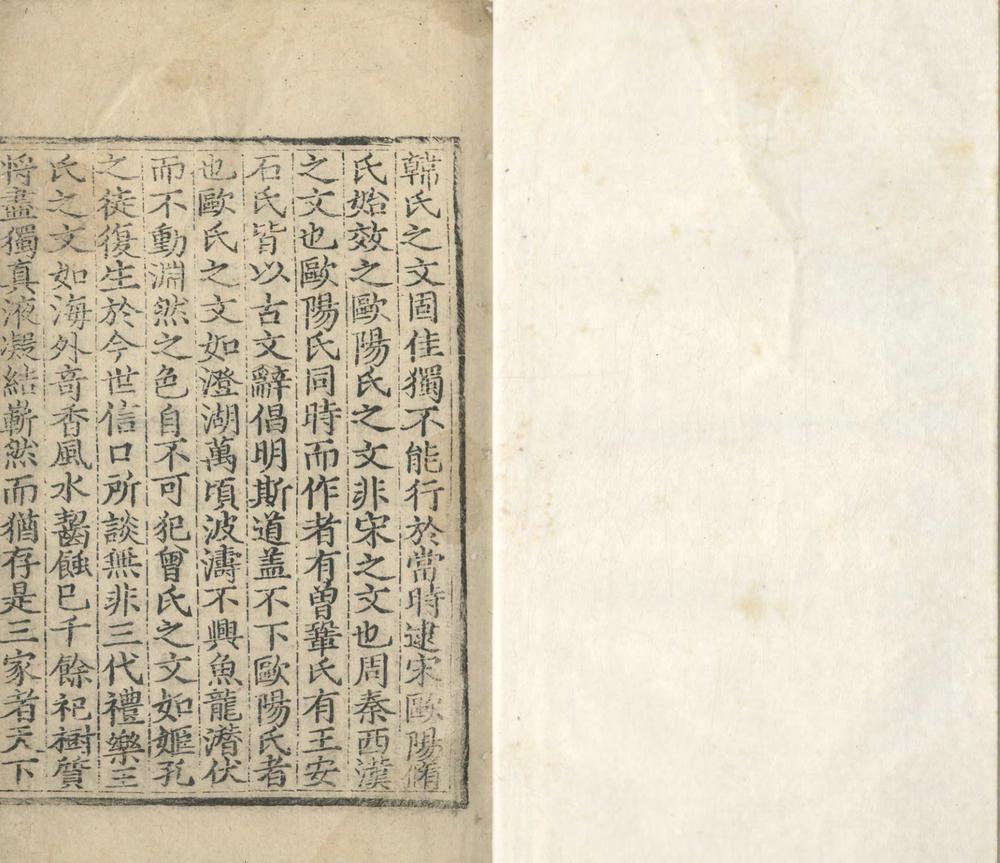 韓氏之文固佳獨不能行於當時逮宋歐陽脩
氏始效之歐陽氏之文非宋之文也周秦西漢
之文也歐陽氏同時而作者有曾鞏氏有王安
石氏皆以古文辭倡明斯道盖不下歐陽氏者
也歐氏之文如澄湖萬頃波濤不興魚龍潜伏
而不動淵然之色自不可犯曾氏之文如姬孔
之徒復生於今世信口所談無非三代禮樂王
氏之文如海外竒香風水齧蝕已千餘祀樹質
將盡獨真液凝結嶄然而猶存是三家者天下